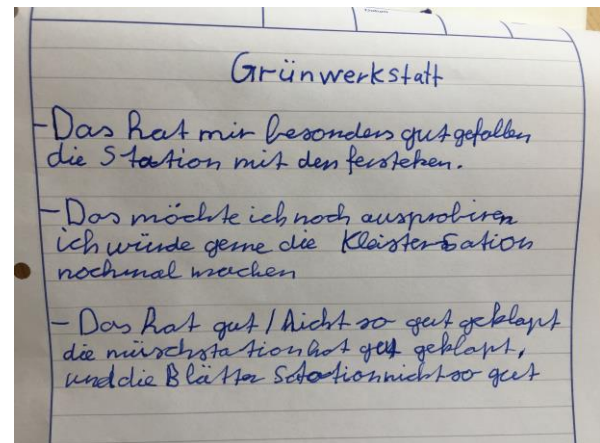 Grünwerkstatt
-Das hat mir besonders gut gefallen
die Station mit den fersteken.
-Das möchte ich noch ausprobiren
ich würde gerne die Kleistersation
nochmal machen
- Das hat gut / nicht so gut geklapt
die müschstation hat gut geklapt,
und die Blätter Station nicht so gut